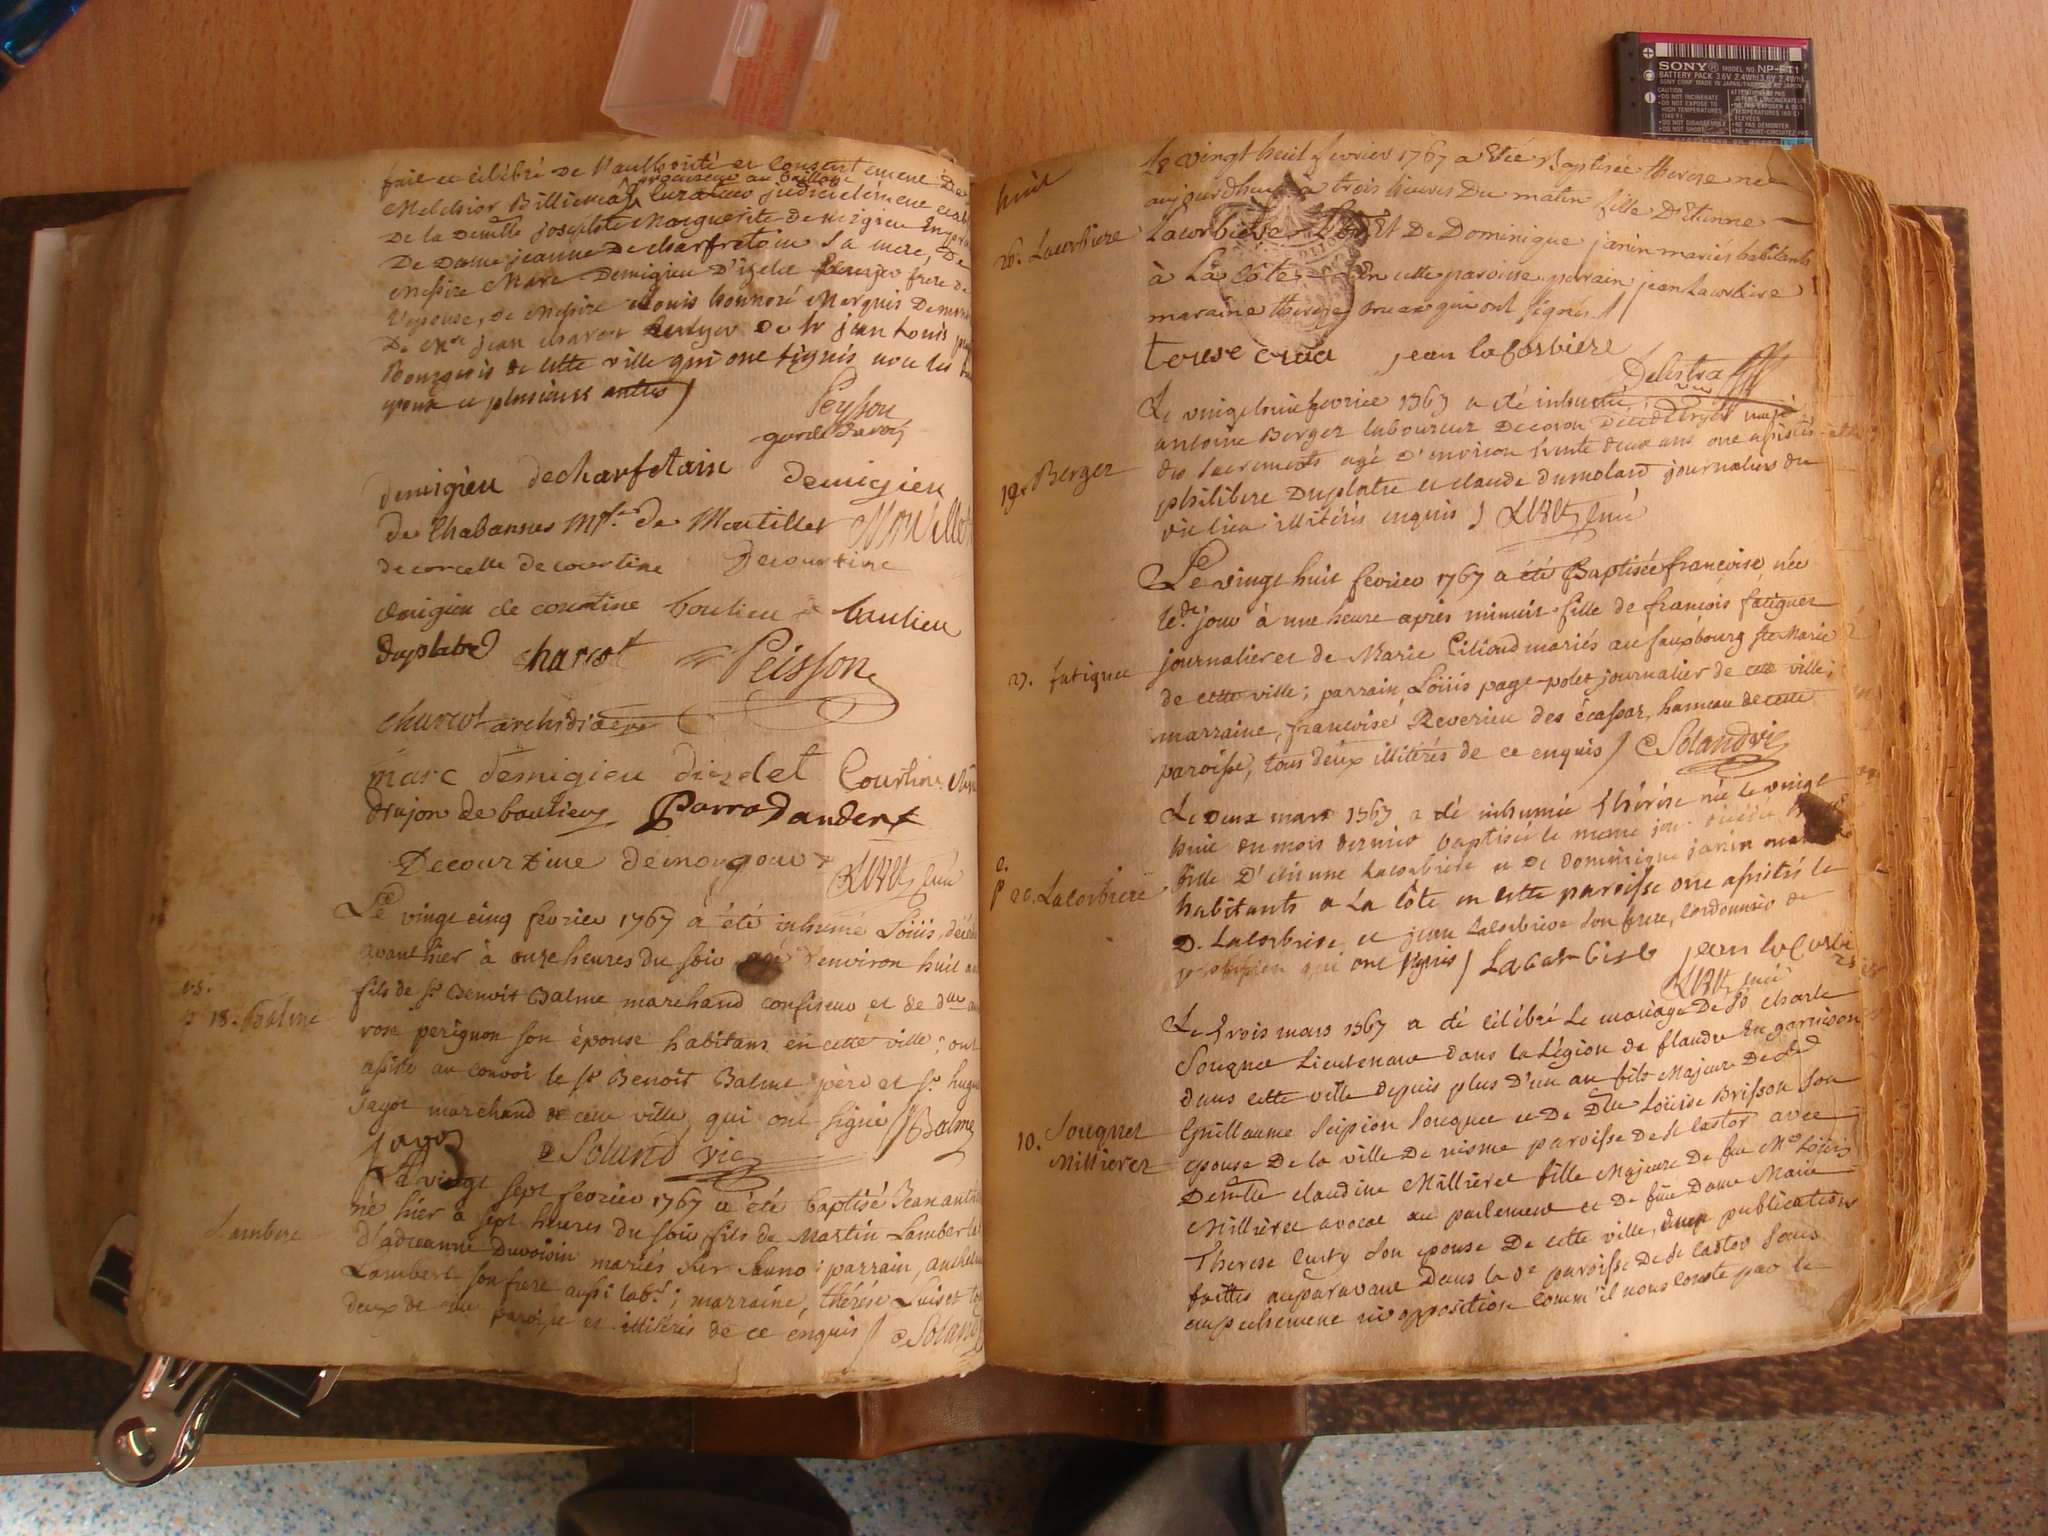 fait et célébré de l'authorité et consentement de
procureur au baillage
Melchior Billiema curateur judicielement
De la Demlle josephte Marguerite demigieu
De Dame jeanne De charfretain sa mere, De
Messire Marc Demigieu D'izelet frere de
l'epouse, de Messire Louis honnoré Marquis De
De Mre jean charcot De Sr jean Louis
Bourgeois de cette ville qui ont signés avec les
epoux et plusieurs autres /
Peysson
garde
demigieu decharfetain demigieu
de Chabannes de Montillet Montillet
de corcelle de courtine Decourtine
demigieu de courtine boulieu boulieu
Duplatre charcot Peisson
charcot archidiacre
marc demigieu dizelet Courtine
drujon de boulieu Parra Dandert
Decourtine curé
Le vingt cinq fevrier 1767 a été inhumé Loüis, décédé
avant hier à onze heures du soir agé d'environ huit ans
fils de Sr Benoit Balme marchand confiseur et de dlle
rose perignon son épouse habitans en cette ville; ont
assisté au convoi le Sr Benoit Balme père et Sr hugue
Jayot marchand de cette ville, qui ont signé / Balme
18. Balme
Soland vic
Le vingt sept fevrier 1767 a été baptisé Jean
né hier à sept heures du soir, fils de Martin Lambert et
d'adrianne Duvoisin mariés sur ; parrain, anthelme
Lambert
Lambert son frere aussi labr; marraine, thérése tous
deux de cette paroisse et illitérés de ce enquis / Soland
huit
Le vingt huit fevrier 1767 a Eté Baptisée therese née
aujourdhuy à trois heures Du matin fille D'Etienne
26. Lacorbiere
Lacorbiere Et De Dominique janin mariés habitants
à La Côte En cette paroisse parain jean Lacorbiere
maraine therese qui ont signés /
terese jean lacorbiere
Delestra vic
Le vingt huit fevrier 1767 a été inhumé
antoine Berger laboureur décédé muni
19. Berger
des sacrements agé d'environ trente deux ans ont assistés
philibert Duplatre et claude dumolard journaliers du
dit lieu illitérés enquis / curé
Le vingt huit fevrier 1767 a été Baptisée francoise, née
le dt jour à une heure après minuit fille de francois fatiguet
27. fatiguet
journalier et de Marie Ciliand mariés au fauxbourg Ste Marie
de cette ville; parrain Loüis page-polet journalier de cette ville;
marraine, francoise Reverieu des écassas, hameau de cette
paroisse, tous deux illitérés de ce enquis / Soland vic
Le Deux mars 1767 a été inhumée thérése née le vingt
huit du mois dernier baptisée le meme jour décédé
20. Lacorbiere
fille D'etienne Lacorbiere et de dominique janin mariés
habitants a La Côte en cette paroisse ont assistés le
D. Lacorbiere et jean Lacorbiere son frere, cordonnier de
qui ont signés / Lacorbiere jean la Corbi
curé
Le trois mars 1767 a été célébré le mariage De Sr charle
Souquet Lieutenant dans la Légion de flandre En garnison
dans cette ville depuis plus D'un an fils Majeur De Sr
Guillaume Scipion Souquet et De Dlle Loüise Brisson son
10. Souquet
Millieret
epouse De la ville De nisme paroisse de St Castor avec
Demlle claudine Millieret fille Majeure de feu Me Loüis
Millieret avocat au parlement et de füe Dame Marie
Therese Custy son epouse De cette ville, deux publications
faittes auparavant Dans la de paroisse De St Castor sans
empechement ni opposition comm'il nous conste par le
SONY MODEL NO. NP-FT1
BATTERY PACK 3.6V 2.4Wh
CAUTION
DO NOT INCINERATE
DO NOT EXPOSE TO
HIGH TEMPERATURES
DO NOT DISASSEMBLE
DO NOT SHORT
NE PAS DEMONTER
NE COURT-CIRCUITEZ PAS